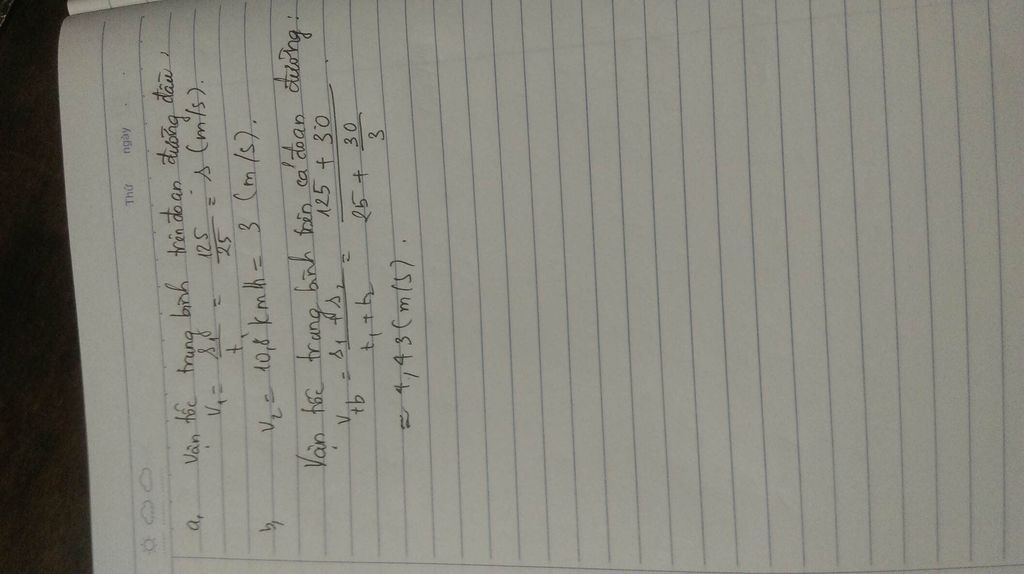 Thứ ngày
a, Vận tốc trung bình trên đoạn đường đầu,
V₁ = S₁/t₁ = 125/25 = 5 (m/s).
b, V₂ = 10,8 km/h = 3 (m/s).
Vận tốc trung bình trên cả đoạn đường:
Vtb = (S₁ + S₂)/(t₁ + t₂) = (125 + 30)/(25 + 30/3)
= 4,43 (m/s).